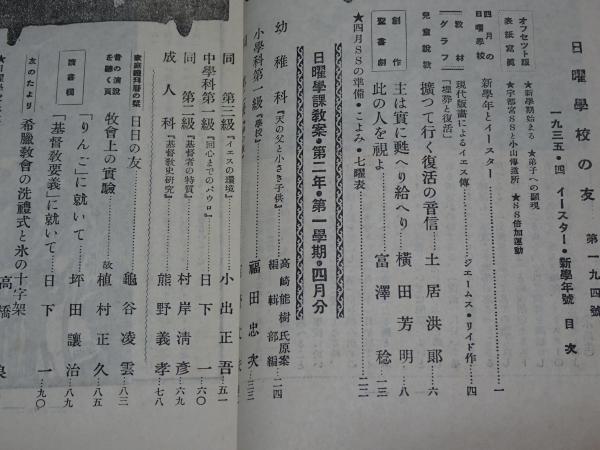 日曜學校の友 第一九四號
一九三五・四 イースター・新學年號 目次
オフセット版
表紙寫眞
★新學期始まる ★弟子への顯現
★宇都宮SSと小山傳道所 ★SS倍加運動
四月の
日曜學校
新學年とイースター 一
教材
グラフ
現代版畵によるイエス傳
『埋葬と復活』 ジェームス・リイド作 四
兒童說敎 擴つて行く復活の音信 土居洪郞 六
創作 主は實に甦へり給へり 橫田芳明 八
聖書劇 此の人を視よ 富澤稔 一三
★四月SSの準備・こよみ・七曜表 二二
日曜學課敎案・第二年・第一學期・四月分
幼稚科 『天の父と小さき子供』 高崎能樹氏原案
編輯部編 二四
小學科第一級 『學校』 福田忠次 三三
同 第三級 『イエスの環境』 小出正吾 五一
中學科第一級 『回心までのパウロ』 日下一 六〇
同 第二級 『基督者の特質』 村岸淸彥 六九
成人科 『基督敎史研究』 熊野義孝 七八
日日の友 龜谷凌雲 八三
昔の演說
を聽く頁
牧會上の實驗 故 植村正久 八五
讀書欄
「りんご」に就いて 坪田讓治 八九
「基督敎要義」に就いて 日下一 九〇
友のたより 希臘敎會の洗禮式と氷の十字架
高橋